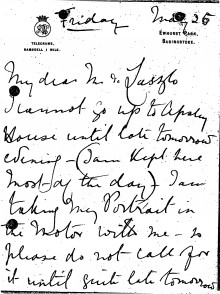 Friday May 26
TELEGRAMS,
RAMSDELL 1 MILE.
EWHURST PARK,
BASINGSTOKE.
My dear Mr de Laszlo
I cannot go up to Apsley
House until late tomorrow
evening – (I am kept here
most of the day). I am
taking my Portrait in
the Motor with me – so
please do not call for
it until quite late tomorrow